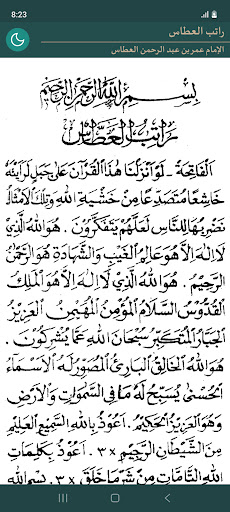 8:23
راتب العطاس
الإمام عمر بن عبد الرحمن العطاس
بِسْمِ اللهِ الرَّحْمٰنِ الرَّحِيْمِ
رَاتِبُ الْعَطَّاسِ
اَلْفَاتِحَةَ - لَوْ اَنْزَلْنَا هٰذَا الْقُرْآنَ عَلَى جَبَلٍ لَرَاَيْتَهُ
خَاشِعًا مُتَصَدِّعًا مِنْ خَشْيَةِ اللهِ وَتِلْكَ الْاَمْثَالُ
نَضْرِبُهَا لِلنَّاسِ لَعَلَّهُمْ يَتَفَكَّرُوْنَ . هُوَ اللهُ الَّذِيْ
لَا اِلٰهَ اِلَّا هُوَ عَالِمُ الْغَيْبِ وَالشَّهَادَةِ هُوَ الرَّحْمٰنُ
الرَّحِيْمُ . هُوَ اللهُ الَّذِيْ لَا اِلٰهَ اِلَّا هُوَ الْمَلِكُ
الْقُدُّوْسُ السَّلَامُ الْمُؤْمِنُ الْمُهَيْمِنُ الْعَزِيْزُ
الْجَبَّارُ الْمُتَكَبِّرُ سُبْحَانَ اللهِ عَمَّا يُشْرِكُوْنَ .
هُوَ اللهُ الْخَالِقُ الْبَارِئُ الْمُصَوِّرُ لَهُ الْاَسْمَاءُ
الْحُسْنٰى يُسَبِّحُ لَهُ مَا فِى السَّمٰوَاتِ وَالْاَرْضِ
وَهُوَ الْعَزِيْزُ الْحَكِيْمُ . اَعُوْذُ بِاللهِ السَّمِيْعِ الْعَلِيْمِ
مِنَ الشَّيْطَانِ الرَّجِيْمِ ×٣ . اَعُوْذُ بِكَلِمَاتِ
اللهِ التَّامَّاتِ مِنْ شَرِّ مَا خَلَقَ ×٣ . بِسْمِ اللهِ